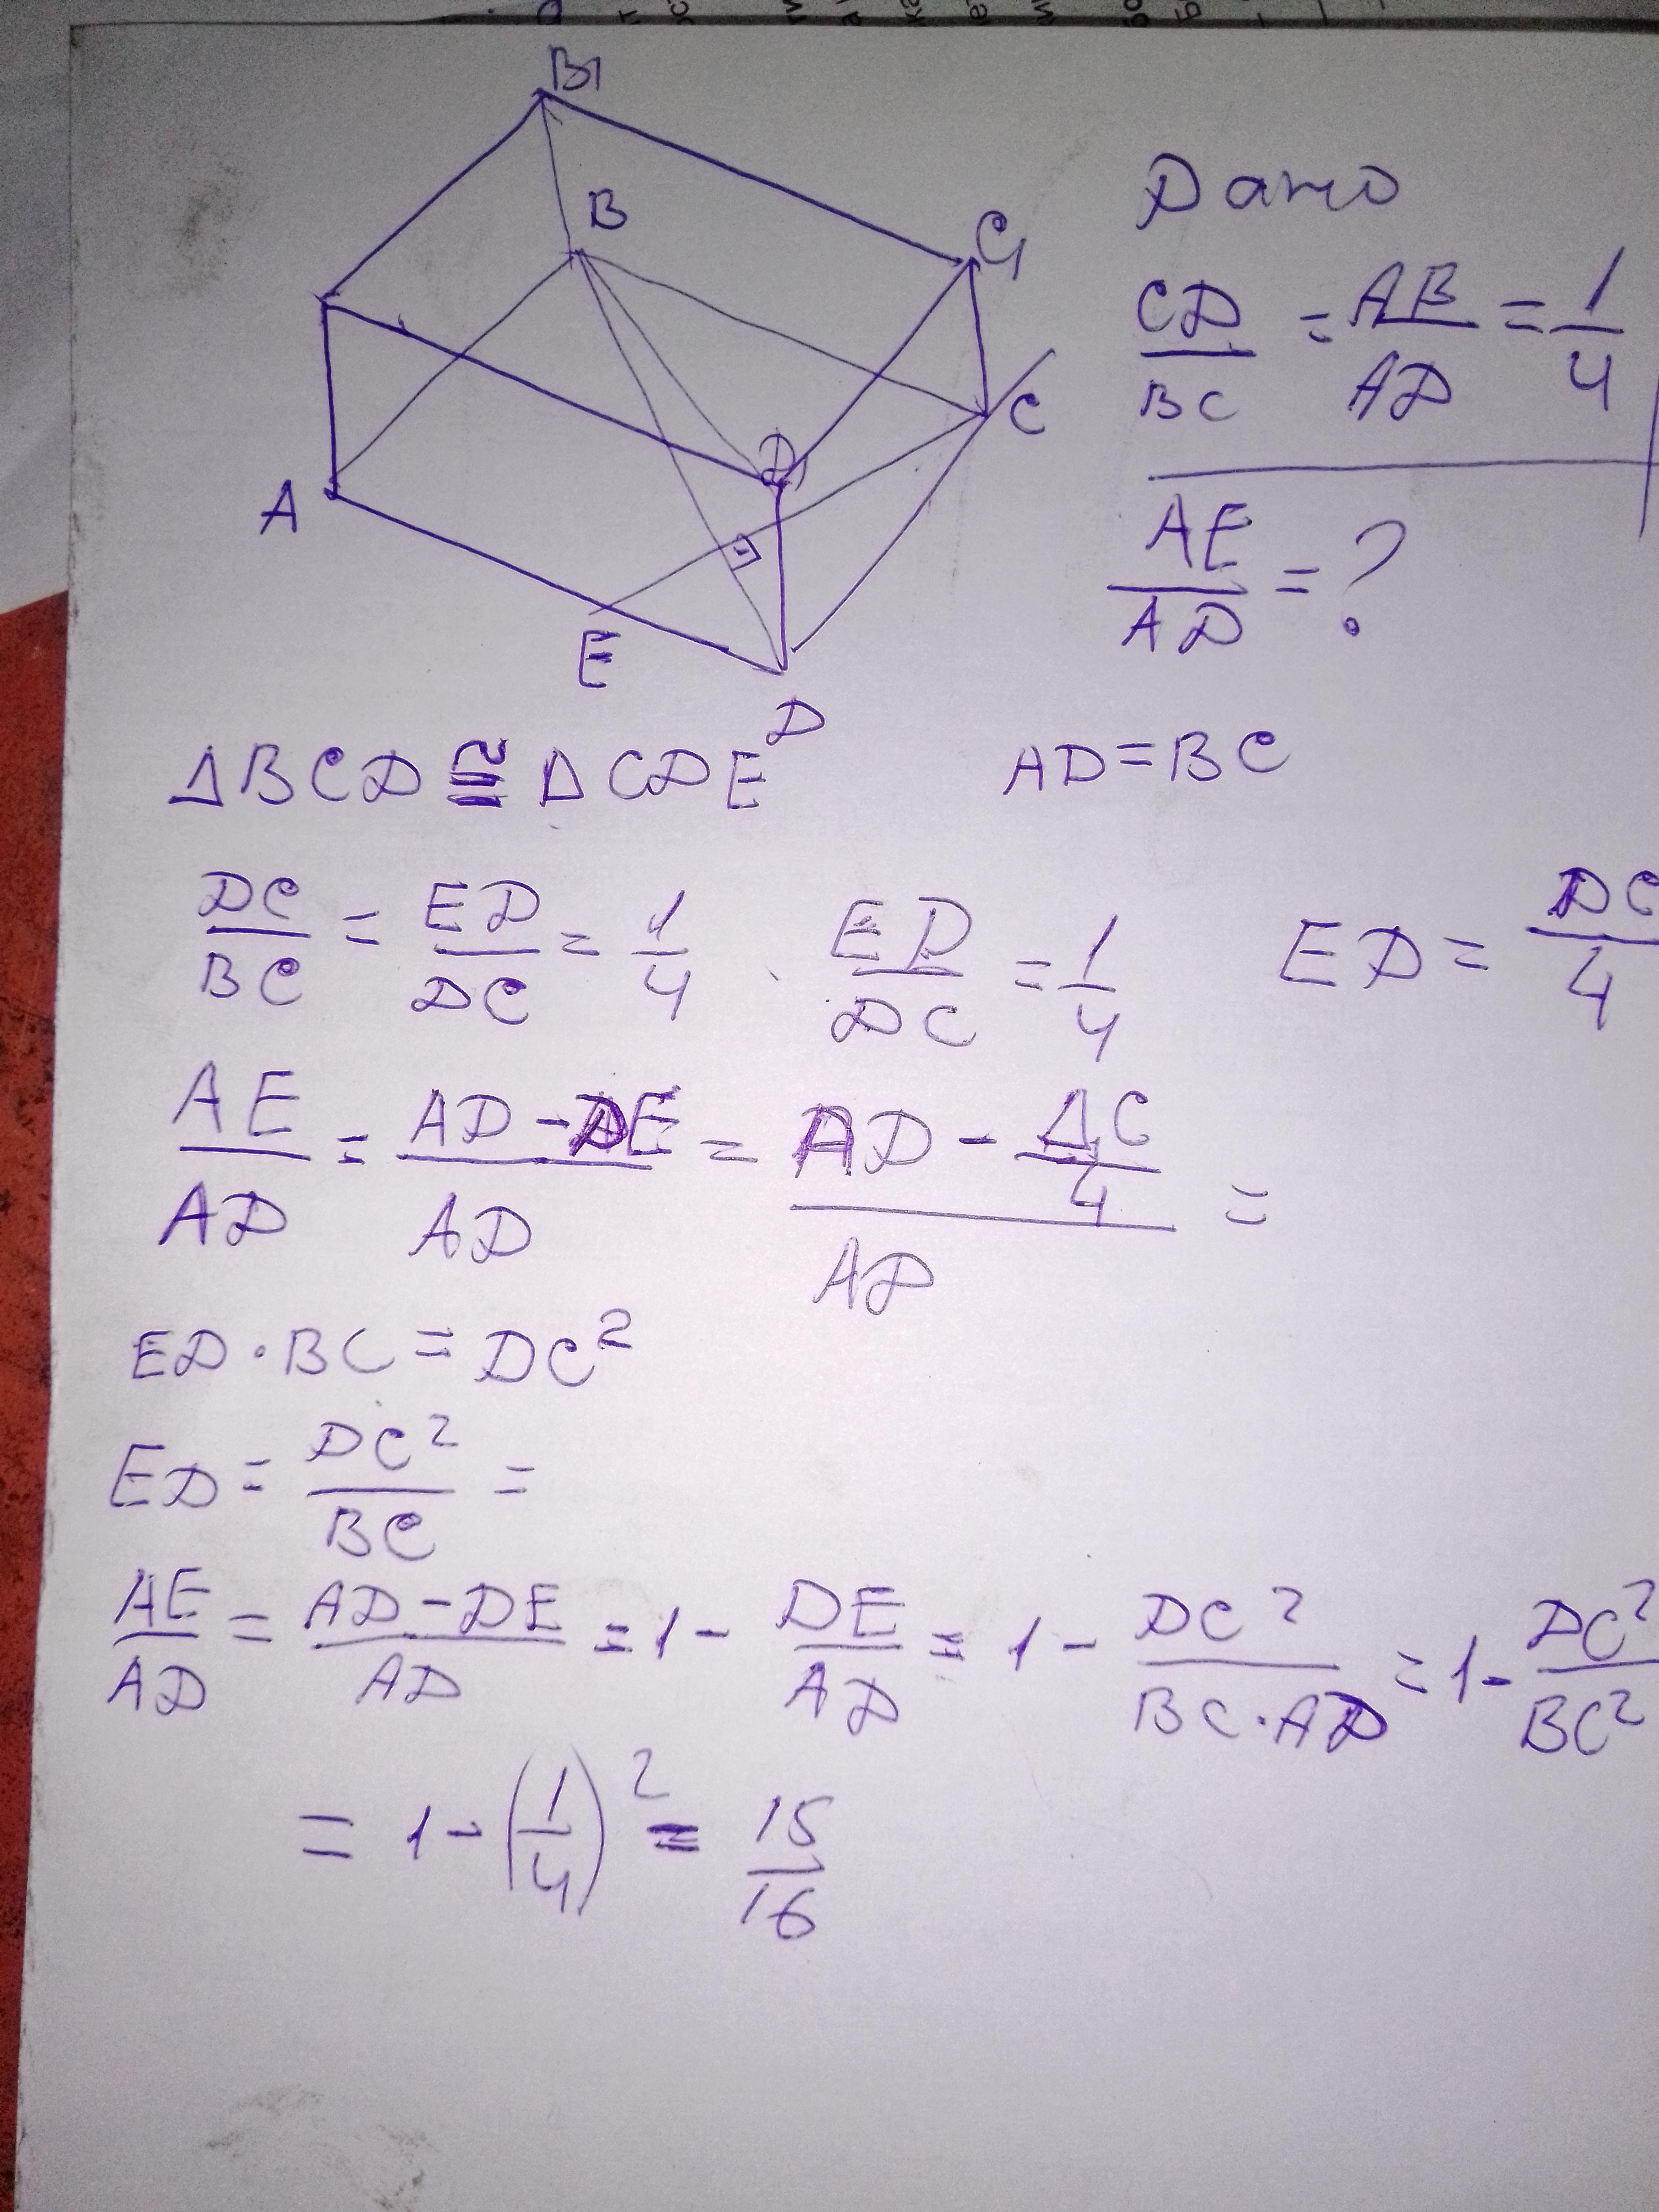 B1
B
C1
D1
C
A
E
D
Дано
CD/BC = AB/AD = 1/4
AE/AD = ?
ΔBCD ≅ ΔCDE AD=BC
DC/BC = ED/DC = 1/4 ED/DC = 1/4 ED = DC/4
AE/AD = (AD-DE)/AD = (AD - DC/4)/AD =
ED·BC = DC²
ED = DC²/BC =
AE/AD = (AD-DE)/AD = 1 - DE/AD = 1 - DC²/(BC·AD) = 1 - DC²/BC²
= 1 - (1/4)² = 15/16